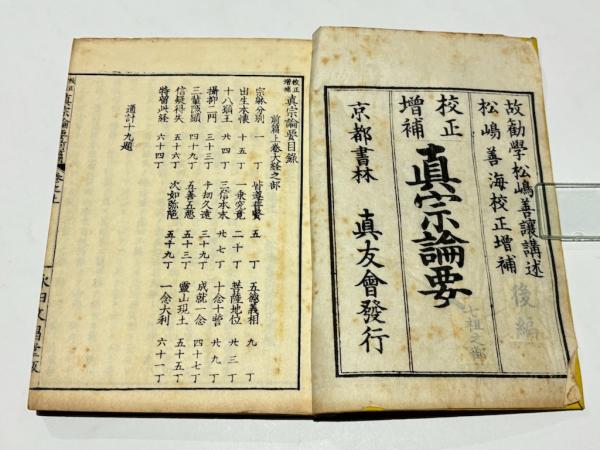 故勸學松嶋善讓講述
松嶋善海校正增補
後編
校正
增補
真宗論要
七祖之部
京都書林 真友會發行
校正
增補
真宗論要目錄
前篇上卷大經之部
宗躰分別 一丁 皆遵普賢 五丁 五德義相 九丁
出生本懷 十五丁 一乗究竟 二十丁 菩薩地位 廿三丁
十八願王 廿四丁 三信本末 廿七丁 十念十聲 廿九丁
攝抑二門 三十三丁 十劫久遠 三十九丁 成就一念 四十七丁
三輩隱顯 四十九丁 五善五惡 五十三丁 靈山現土 五十五丁
信疑得失 五十六丁 次如弥陀 五十九丁 一念大利 六十一丁
特留此經 六十四丁
通計十九題
校正
真宗論要前篇 卷之上 永田文昌堂